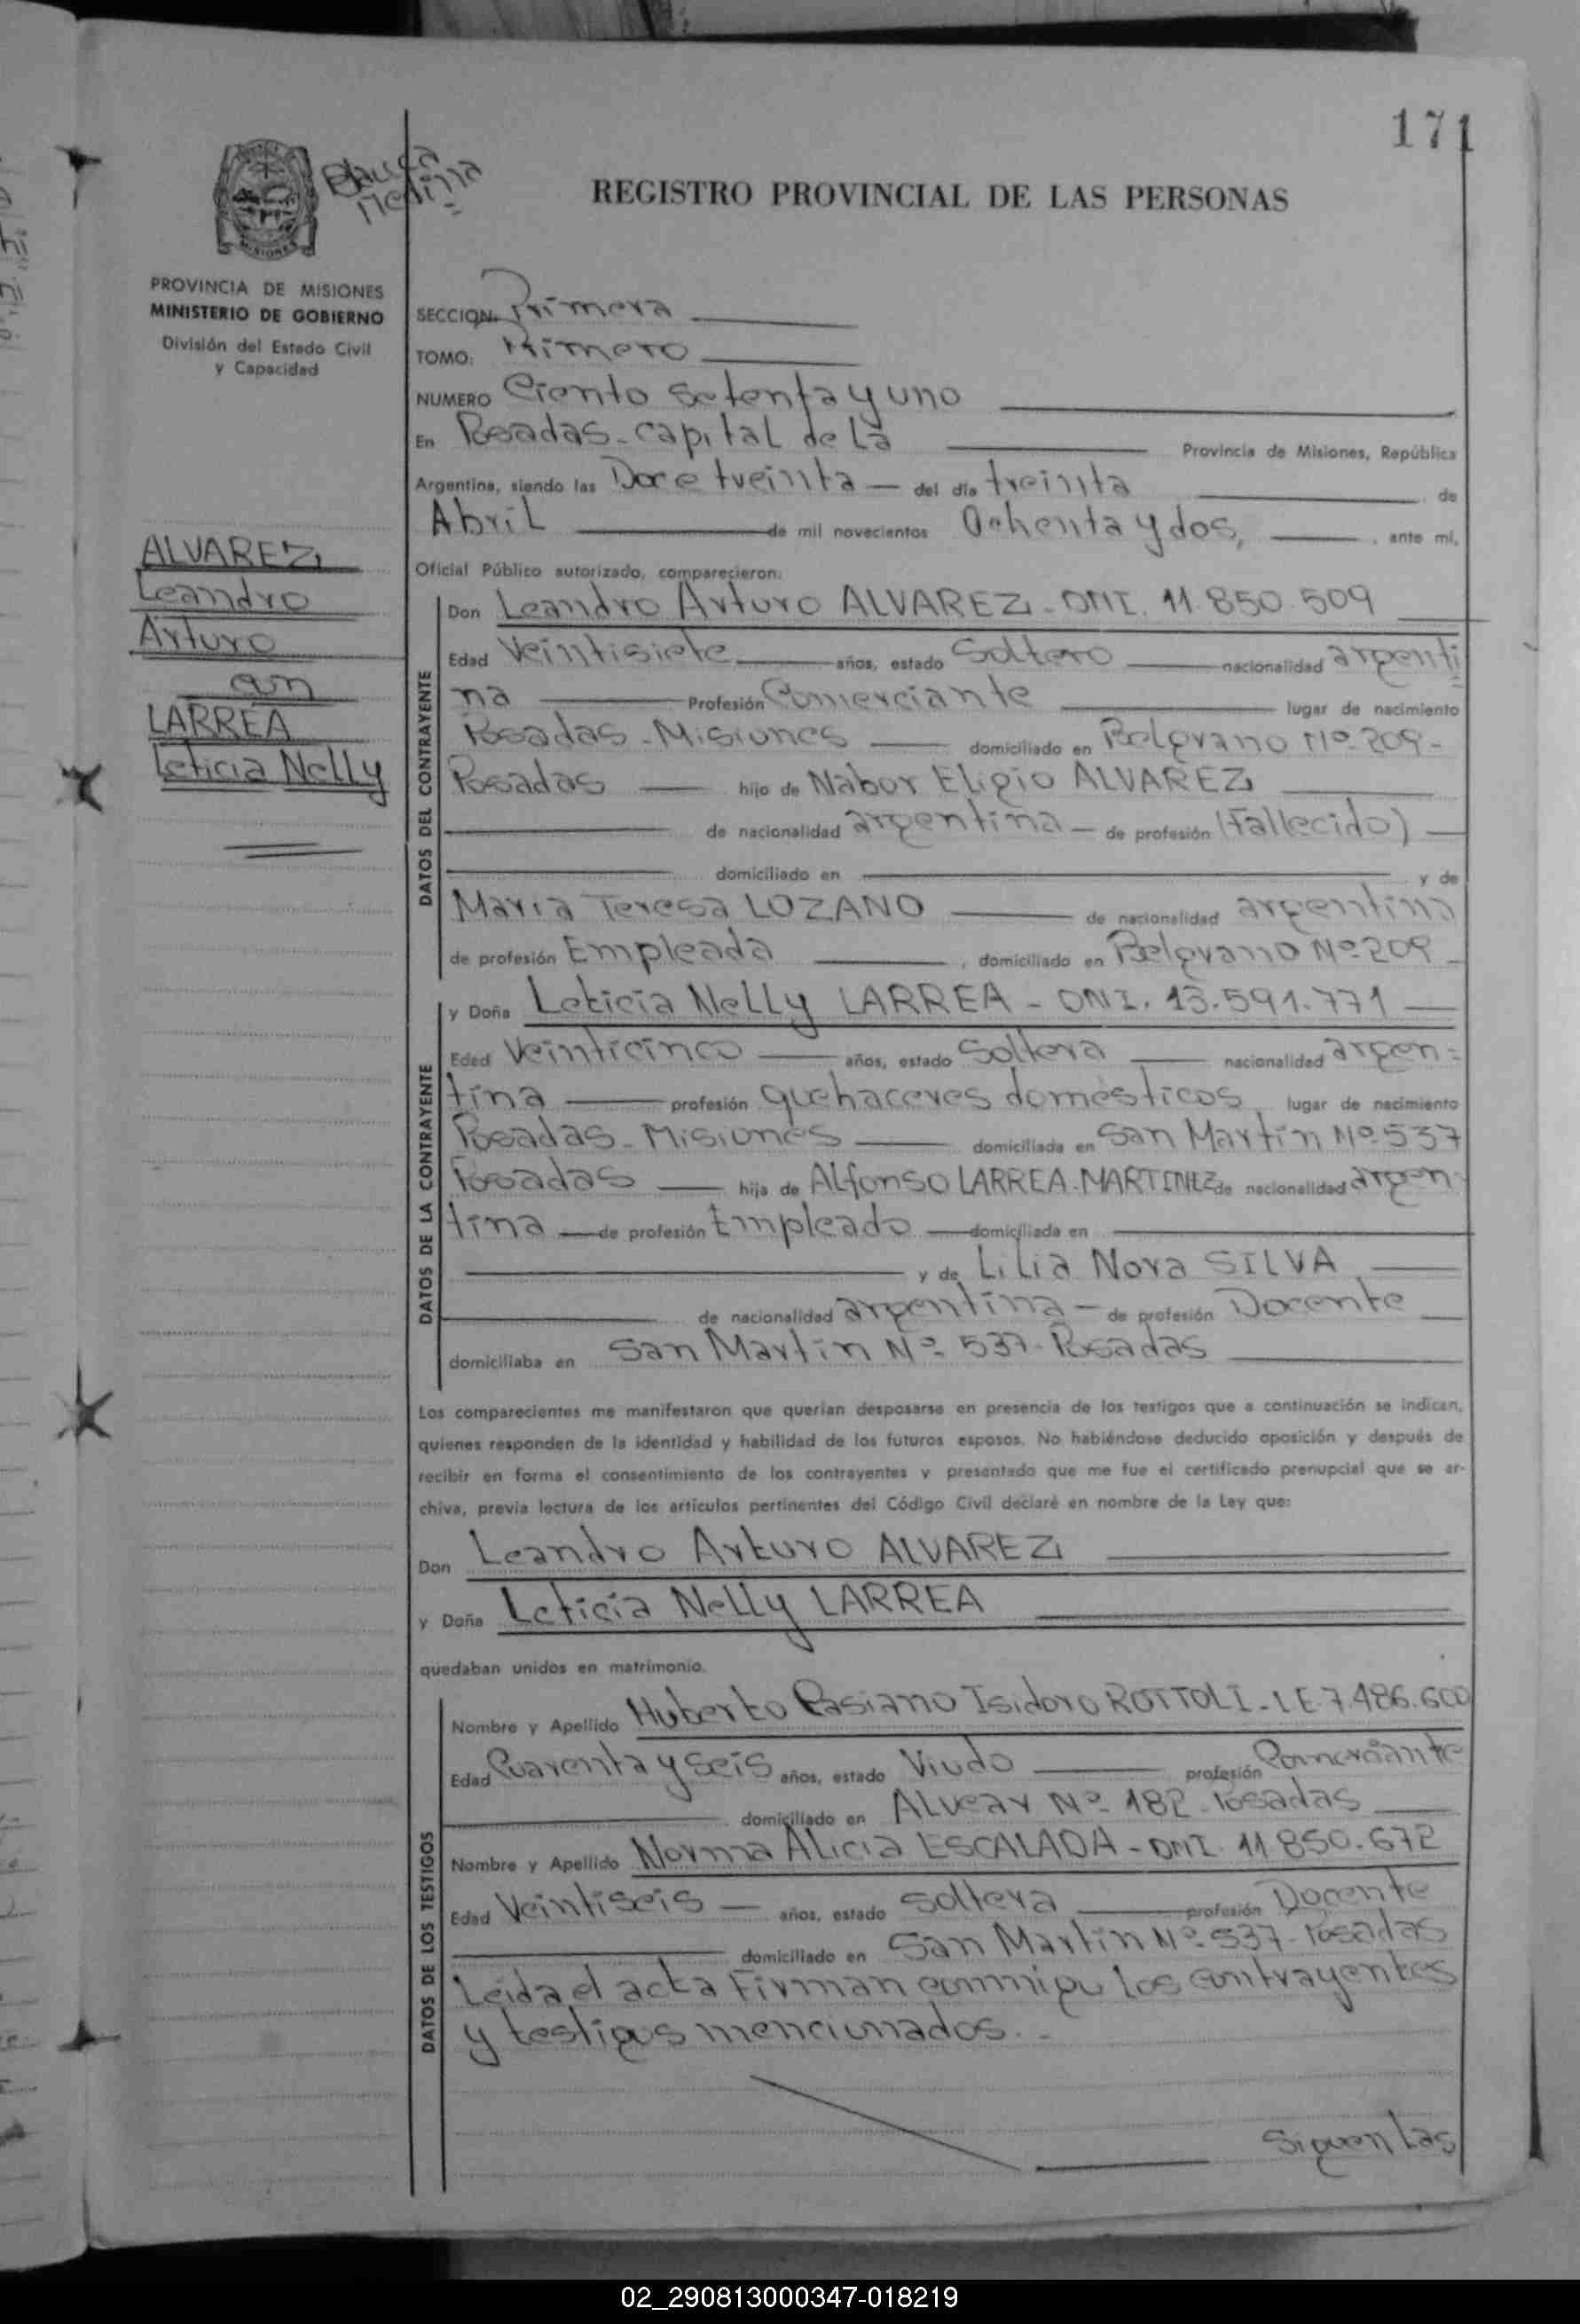 171
REGISTRO PROVINCIAL DE LAS PERSONAS
MISIONES
PROVINCIA DE MISIONES
MINISTERIO DE GOBIERNO
División del Estado Civil
y Capacidad
SECCION. Primera
TOMO: Primero
NUMERO Ciento setenta y uno
En Posadas-capital de La Provincia de Misiones, República
Argentina, siendo las Doce treinta del día treinta de
Abril de mil novecientos Ochenta y dos, , ante mí,
Oficial Público autorizado, comparecieron:
ALVAREZ
Leandro
Arturo
con
LARREA
Leticia Nelly
DATOS DEL CONTRAYENTE
Don Leandro Arturo ALVAREZ - DNI. 11.850.509
Edad Veintisiete años, estado Soltero nacionalidad argenti
na Profesión Comerciante lugar de nacimiento
Posadas - Misiones domiciliado en Belgrano Nº 209-
Posadas hijo de Nabor Eligio ALVAREZ
de nacionalidad argentina - de profesión (Fallecido)
domiciliado en y de
Maria Teresa LOZANO de nacionalidad argentina
de profesión Empleada , domiciliado en Belgrano Nº 209
DATOS DE LA CONTRAYENTE
y Doña Leticia Nelly LARREA - DNI. 13.591.771
Edad Veinticinco años, estado Soltera nacionalidad argen=
tina profesión quehaceres domésticos lugar de nacimiento
Posadas - Misiones domiciliada en San Martín Nº 537
Posadas hija de Alfonso LARREA-MARTINEZ de nacionalidad argen-
tina de profesión Empleado domiciliada en
y de Lilia Nora SILVA
de nacionalidad argentina - de profesión Docente
domiciliaba en San Martin Nº 537- Posadas
Los comparecientes me manifestaron que querían desposarse en presencia de los testigos que a continuación se indican,
quienes responden de la identidad y habilidad de los futuros esposos. No habiéndose deducido oposición y después de
recibir en forma el consentimiento de los contrayentes y presentado que me fue el certificado prenupcial que se ar-
chiva, previa lectura de los artículos pertinentes del Código Civil declaré en nombre de la Ley que:
Don Leandro Arturo ALVAREZ
y Doña Leticia Nelly LARREA
quedaban unidos en matrimonio.
DATOS DE LOS TESTIGOS
Nombre y Apellido Huberto Casiano Isidoro ROTTOLI - LE 7.486.600
Edad Cuarenta y seis años, estado Viudo profesión Comerciante
domiciliado en Alvear Nº 182 - Posadas
Nombre y Apellido Norma Alicia ESCALADA - DNI. 11.850.672
Edad Veintiseis años, estado Soltera profesión Docente
domiciliado en San Martín Nº 537- Posadas
Leida el acta Firman conmigo los contrayentes
y testigos mencionados.-
Siguen las
02_290813000347-018219